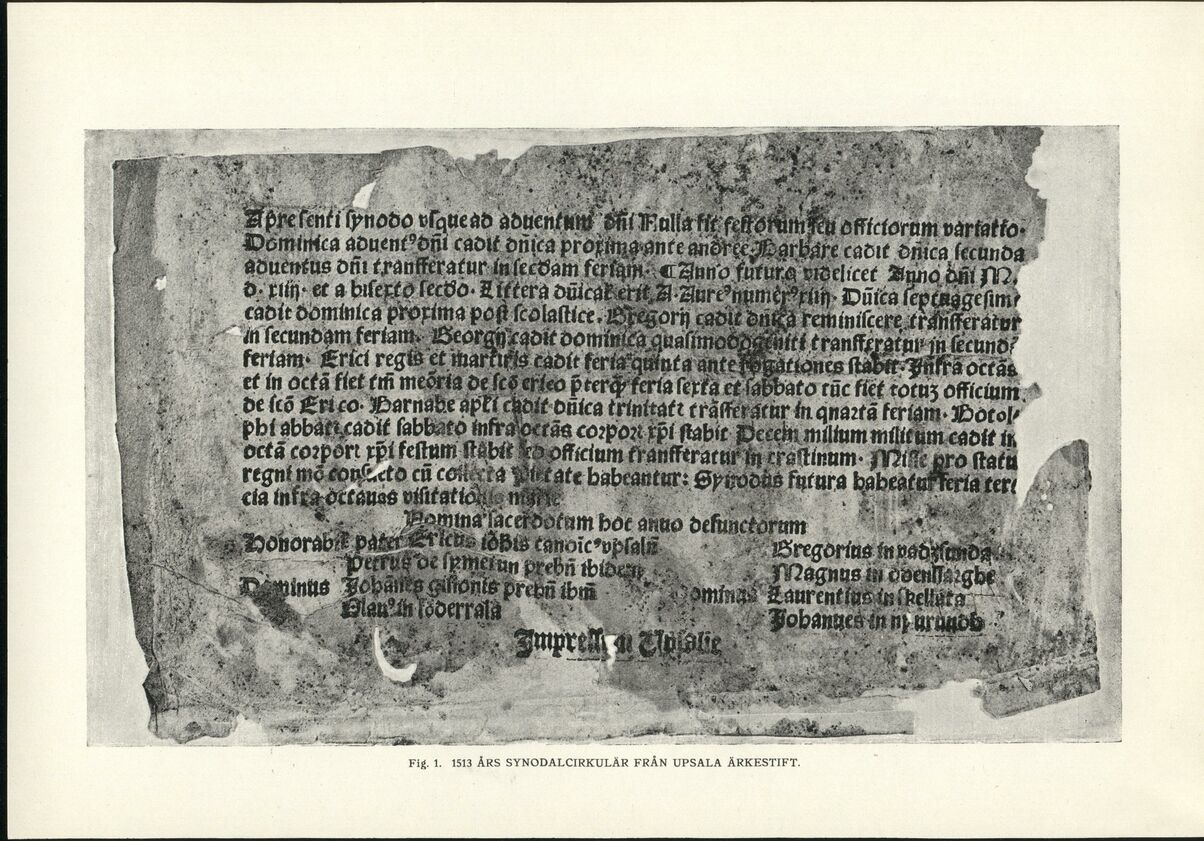 A presenti synodo vsque ad aduentum dñi Nulla fit festorum seu officiorum variatio.
Dominica aduentꝰ dñi cadit dñica proxima ante andree. Barbare cadit dñica secunda
aduentus dñi transferatur in secd̄am feriam. ¶ Anno futuro videlicet Anno dñi M.
d. xiiij. et a bisexto secd̄o. Littera dñical erit A. Aureꝰ numerꝰ xiiij. Dñica septuagesime
cadit dominica proxima post scolastice. Gregorij cadit dñica reminiscere transferatur
in secundam feriam. Georgij cadit dominica quasimodogeniti transferatur in secund
feriam. Erici regis et martiris cadit feria quinta ante rogationes stabit. Infra octas
et in octā fiet tm̄ meōria de scō erico p̄terqꝫ feria sexta et sabbato tūc fiet totuꝫ officium
de scō Erico. Barnabe apłi cadit dñica trinitatꝭ trāsferatur in quartā feriam. Botol-
phi abbatꝭ cadit sabbato infra octās corporꝭ xp̄i stabit Decem milium militum cadit in
octā corporꝭ xp̄i festum stabit sed officium transferatur in crastinum. Misse pro statu
regni mō consueto cū collecta Pietate habeantur: Synodus futura habeatur feria ter
cia infra octauas visitationis marie
Nomina sacerdotum hoc anno defunctorum
Honorabił pater Ericus ioh̄is canoīcꝰ vpsaleñ
Petrus de symetun prebñ ibidem
Dominus Johānes gislonis prebñ ibm̄
Olauꝰ in söderrala
Gregorius in vadzsunda
Magnus in odenssarghe
Dominus Laurentius in skelluta
Johannes in
Impressum Upsalie
Fig. 1. 1513 ÅRS SYNODALCIRKULÄR FRÅN UPSALA ÄRKESTIFT.